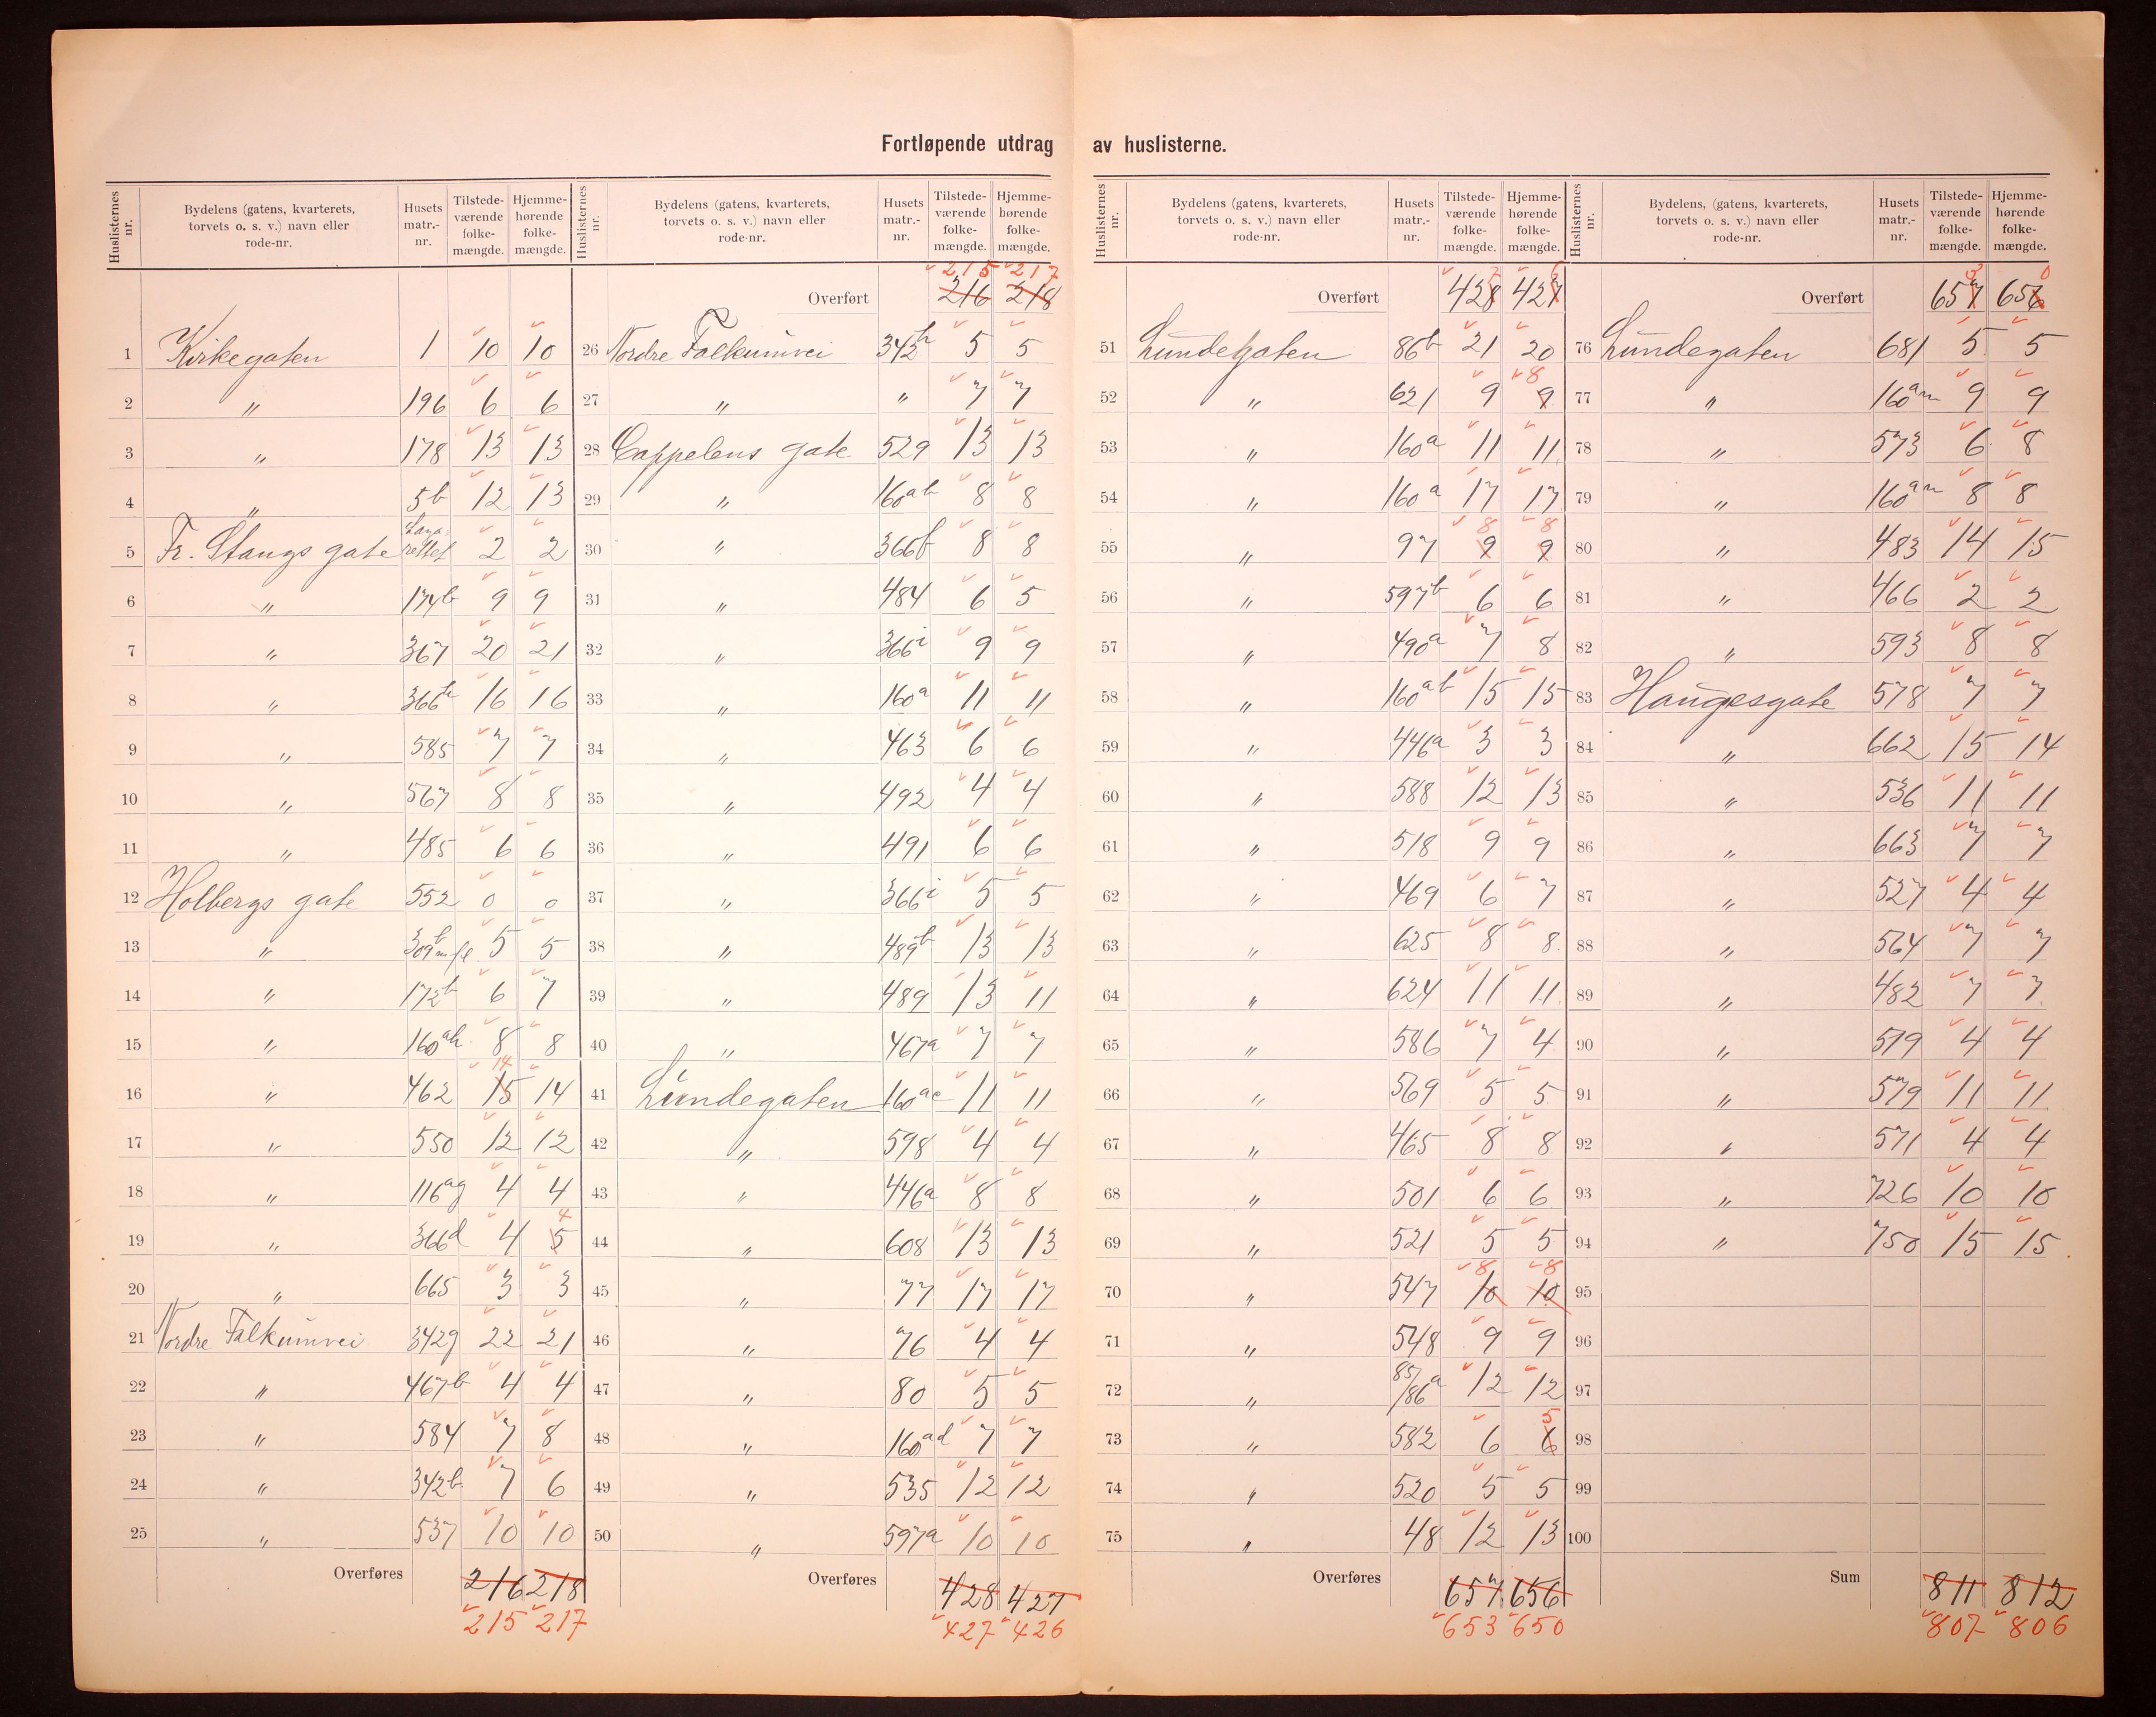 Fortløpende utdrag av huslisterne.
Huslisternes nr. | Bydelens (gatens, kvarterets, torvets o. s. v.) navn eller rode-nr. | Husets matr.-nr. | Tilstede-værende folke-mængde. | Hjemme-hørende folke-mængde.
1 Kirkegaten 1 10 10
2 " 196 6 6
3 " 178 13 13
4 " 5b 12 13
5 Fr. Stangs gate Lazarettet 2 2
6 " 174b 9 9
7 " 367 20 21
8 " 366h 16 16
9 " 585 7 7
10 " 567 8 8
11 " 485 6 6
12 Holbergs gate 552 0 0
13 " 309b m fl 5 5
14 " 172b 6 7
15 " 160ah 8 8
16 " 462 15 14 14
17 " 550 12 12
18 " 116ag 4 4
19 " 366d 4 5 4
20 " 665 3 3
21 Nordre Falkumvei 342g 22 21
22 " 467b 4 4
23 " 584 7 8
24 " 342b 7 6
25 " 537 10 10
Overføres 216 218
215 217
Huslisternes nr. | Bydelens (gatens, kvarterets, torvets o. s. v.) navn eller rode-nr. | Husets matr.-nr. | Tilstede-værende folke-mængde. | Hjemme-hørende folke-mængde.
215 217
Overført 216 218
26 Nordre Falkumvei 342h 5 5
27 " " 7 7
28 Cappelens gate 529 13 13
29 " 160ab 8 8
30 " 366f 8 8
31 " 484 6 5
32 " 366i 9 9
33 " 160a 11 11
34 " 463 6 6
35 " 492 4 4
36 " 491 6 6
37 " 366i 5 5
38 " 489b 13 13
39 " 489 13 11
40 " 467a 7 7
41 Lundegaten 160ae 11 11
42 " 598 4 4
43 " 446a 8 8
44 " 608 13 13
45 " 77 17 17
46 " 76 4 4
47 " 80 5 5
48 " 160ad 7 7
49 " 535 12 12
50 " 597a 10 10
Overføres 428 427
427 426
Huslisternes nr. | Bydelens (gatens, kvarterets, torvets o. s. v.) navn eller rode-nr. | Husets matr.-nr. | Tilstede-værende folke-mængde. | Hjemme-hørende folke-mængde.
7 6
Overført 428 427
51 Lundegaten 86b 21 20
52 " 621 9 9 8
53 " 160a 11 11
54 " 160a 17 17
55 " 97 9 8 9 8
56 " 597b 6 6
57 " 490a 7 8
58 " 160ab 15 15
59 " 446a 3 3
60 " 588 12 13
61 " 518 9 9
62 " 469 6 7
63 " 625 8 8
64 " 624 11 11
65 " 586 7 4
66 " 569 5 5
67 " 465 8 8
68 " 501 6 6
69 " 521 5 5
70 " 547 10 8 10 8
71 " 548 9 9
72 " 85/86a 12 12
73 " 582 6 6 5
74 " 520 5 5
75 " 48 12 13
Overføres 657 656
653 650
Huslisternes nr. | Bydelens, (gatens, kvarterets, torvets o. s. v.) navn eller rode-nr. | Husets matr.-nr. | Tilstede-værende folke-mængde. | Hjemme-hørende folke-mængde.
3 0
Overført 657 656
76 Lundegaten 681 5 5
77 " 160am 9 9
78 " 573 6 8
79 " 160am 8 8
80 " 483 14 15
81 " 466 2 2
82 " 593 8 8
83 Haugesgate 578 7 7
84 " 662 15 14
85 " 536 11 11
86 " 663 7 7
87 " 527 4 4
88 " 564 7 7
89 " 482 7 7
90 " 519 4 4
91 " 579 11 11
92 " 571 4 4
93 " 726 10 10
94 " 750 15 15
95
96
97
98
99
100
Sum 811 812
807 806